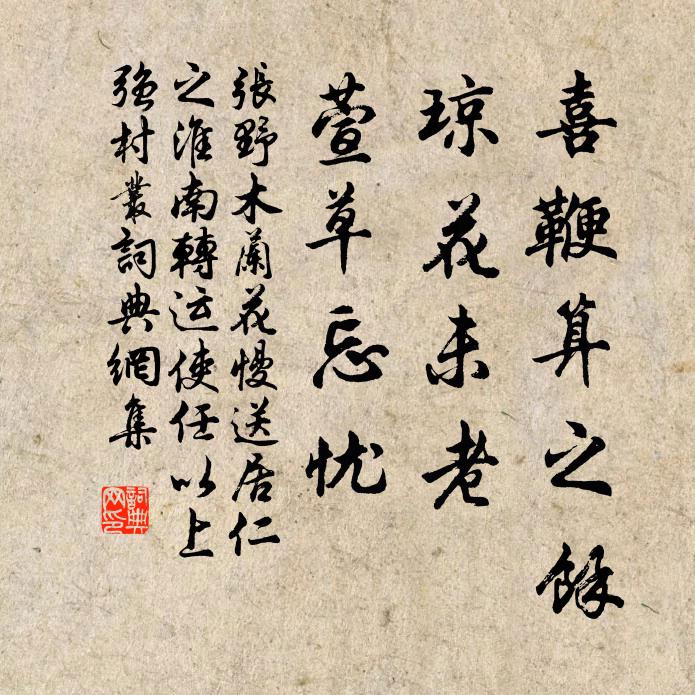 喜鞭算之餘
琼花未老
萱草忘忧
張野木蘭花慢送居仁
之淮南轉运使任以上
强村叢詞典網集
詞典网印